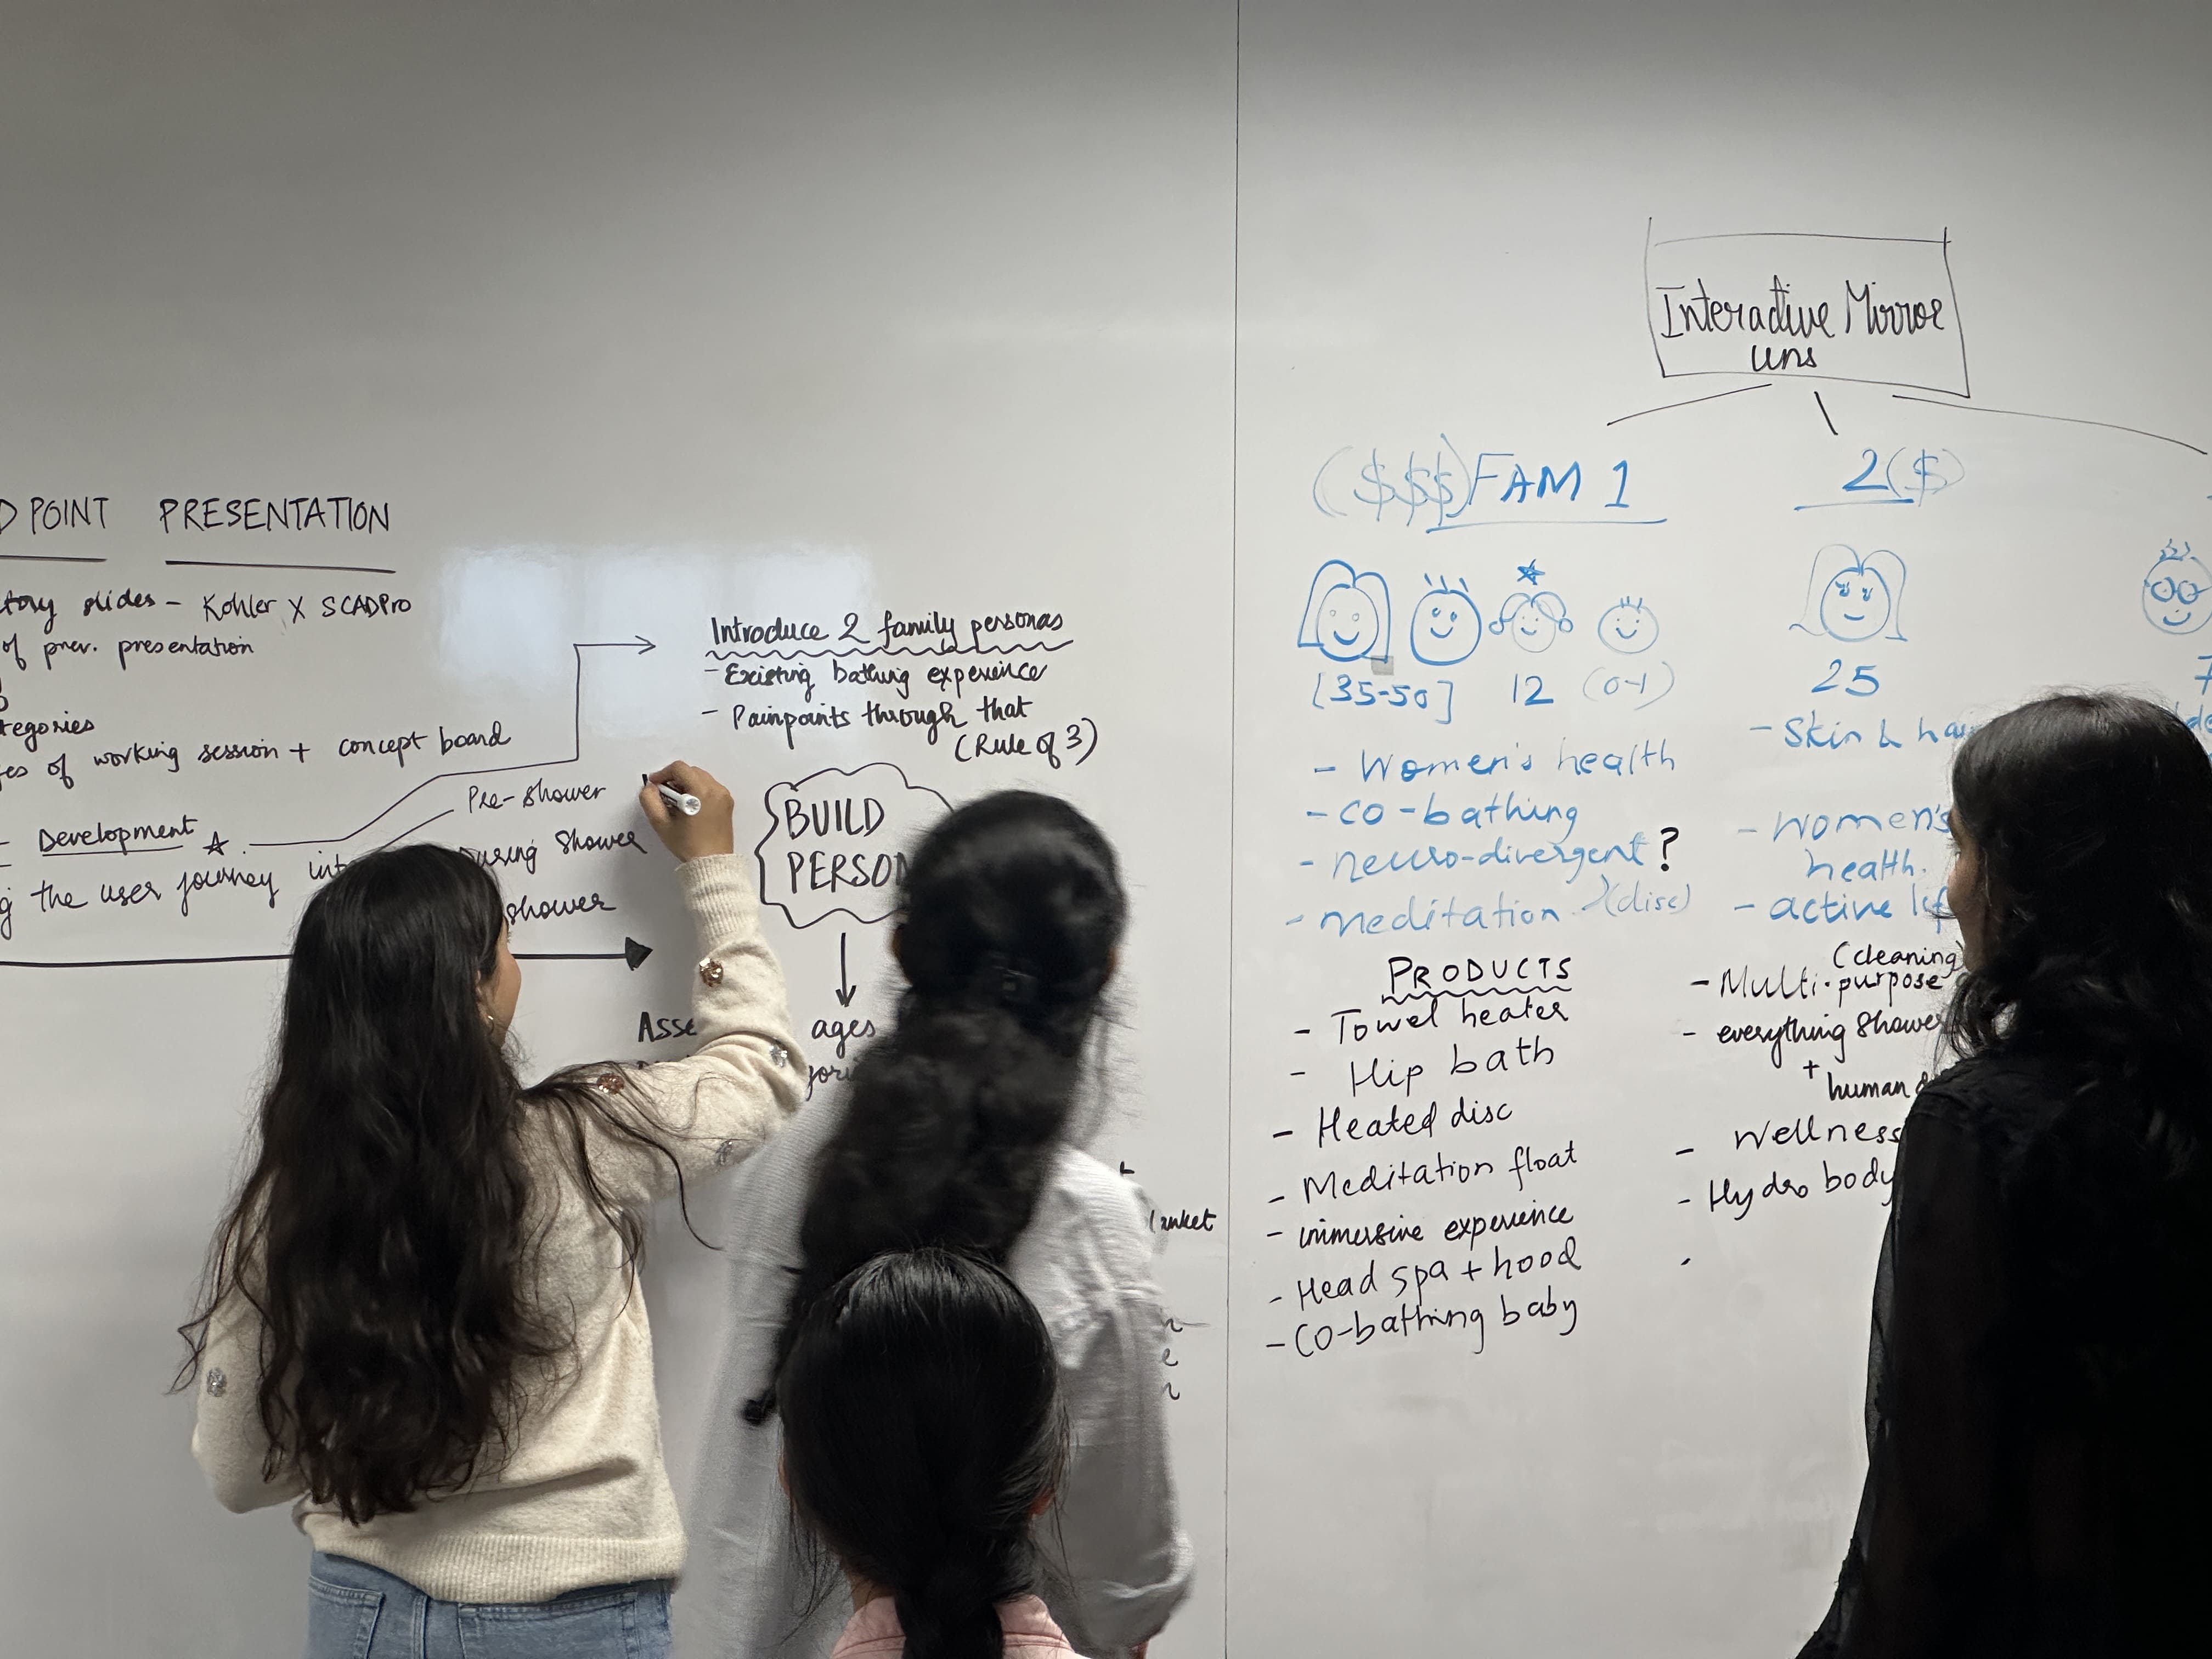 D POINT PRESENTATION
tory slides - Kohler X SCADPro
of prev. presentation
tegories
es of working session + concept board
- Development ☆
g the user journey
Pre-shower
During Shower
shower
Introduce 2 family personas
- Existing bathing experience
- Painpoints through that
(Rule of 3)
BUILD
PERSON
Asse
ages
lanket
Interactive Mirror
($$$) FAM 1
[35-50] 12 (0-1)
- Women's health
- co-bathing
- neuro-divergent ?
- meditation (disc)
PRODUCTS
- Towel heater
- Hip bath
- Heated disc
- Meditation float
- immersive experience
- Head spa + hood
- CO-bathing baby
2($)
25
- Skin &
- women's
health.
- active
(cleaning)
- Multi-purpose
- everything shower
+
human
- Wellness
- Hydro body
7